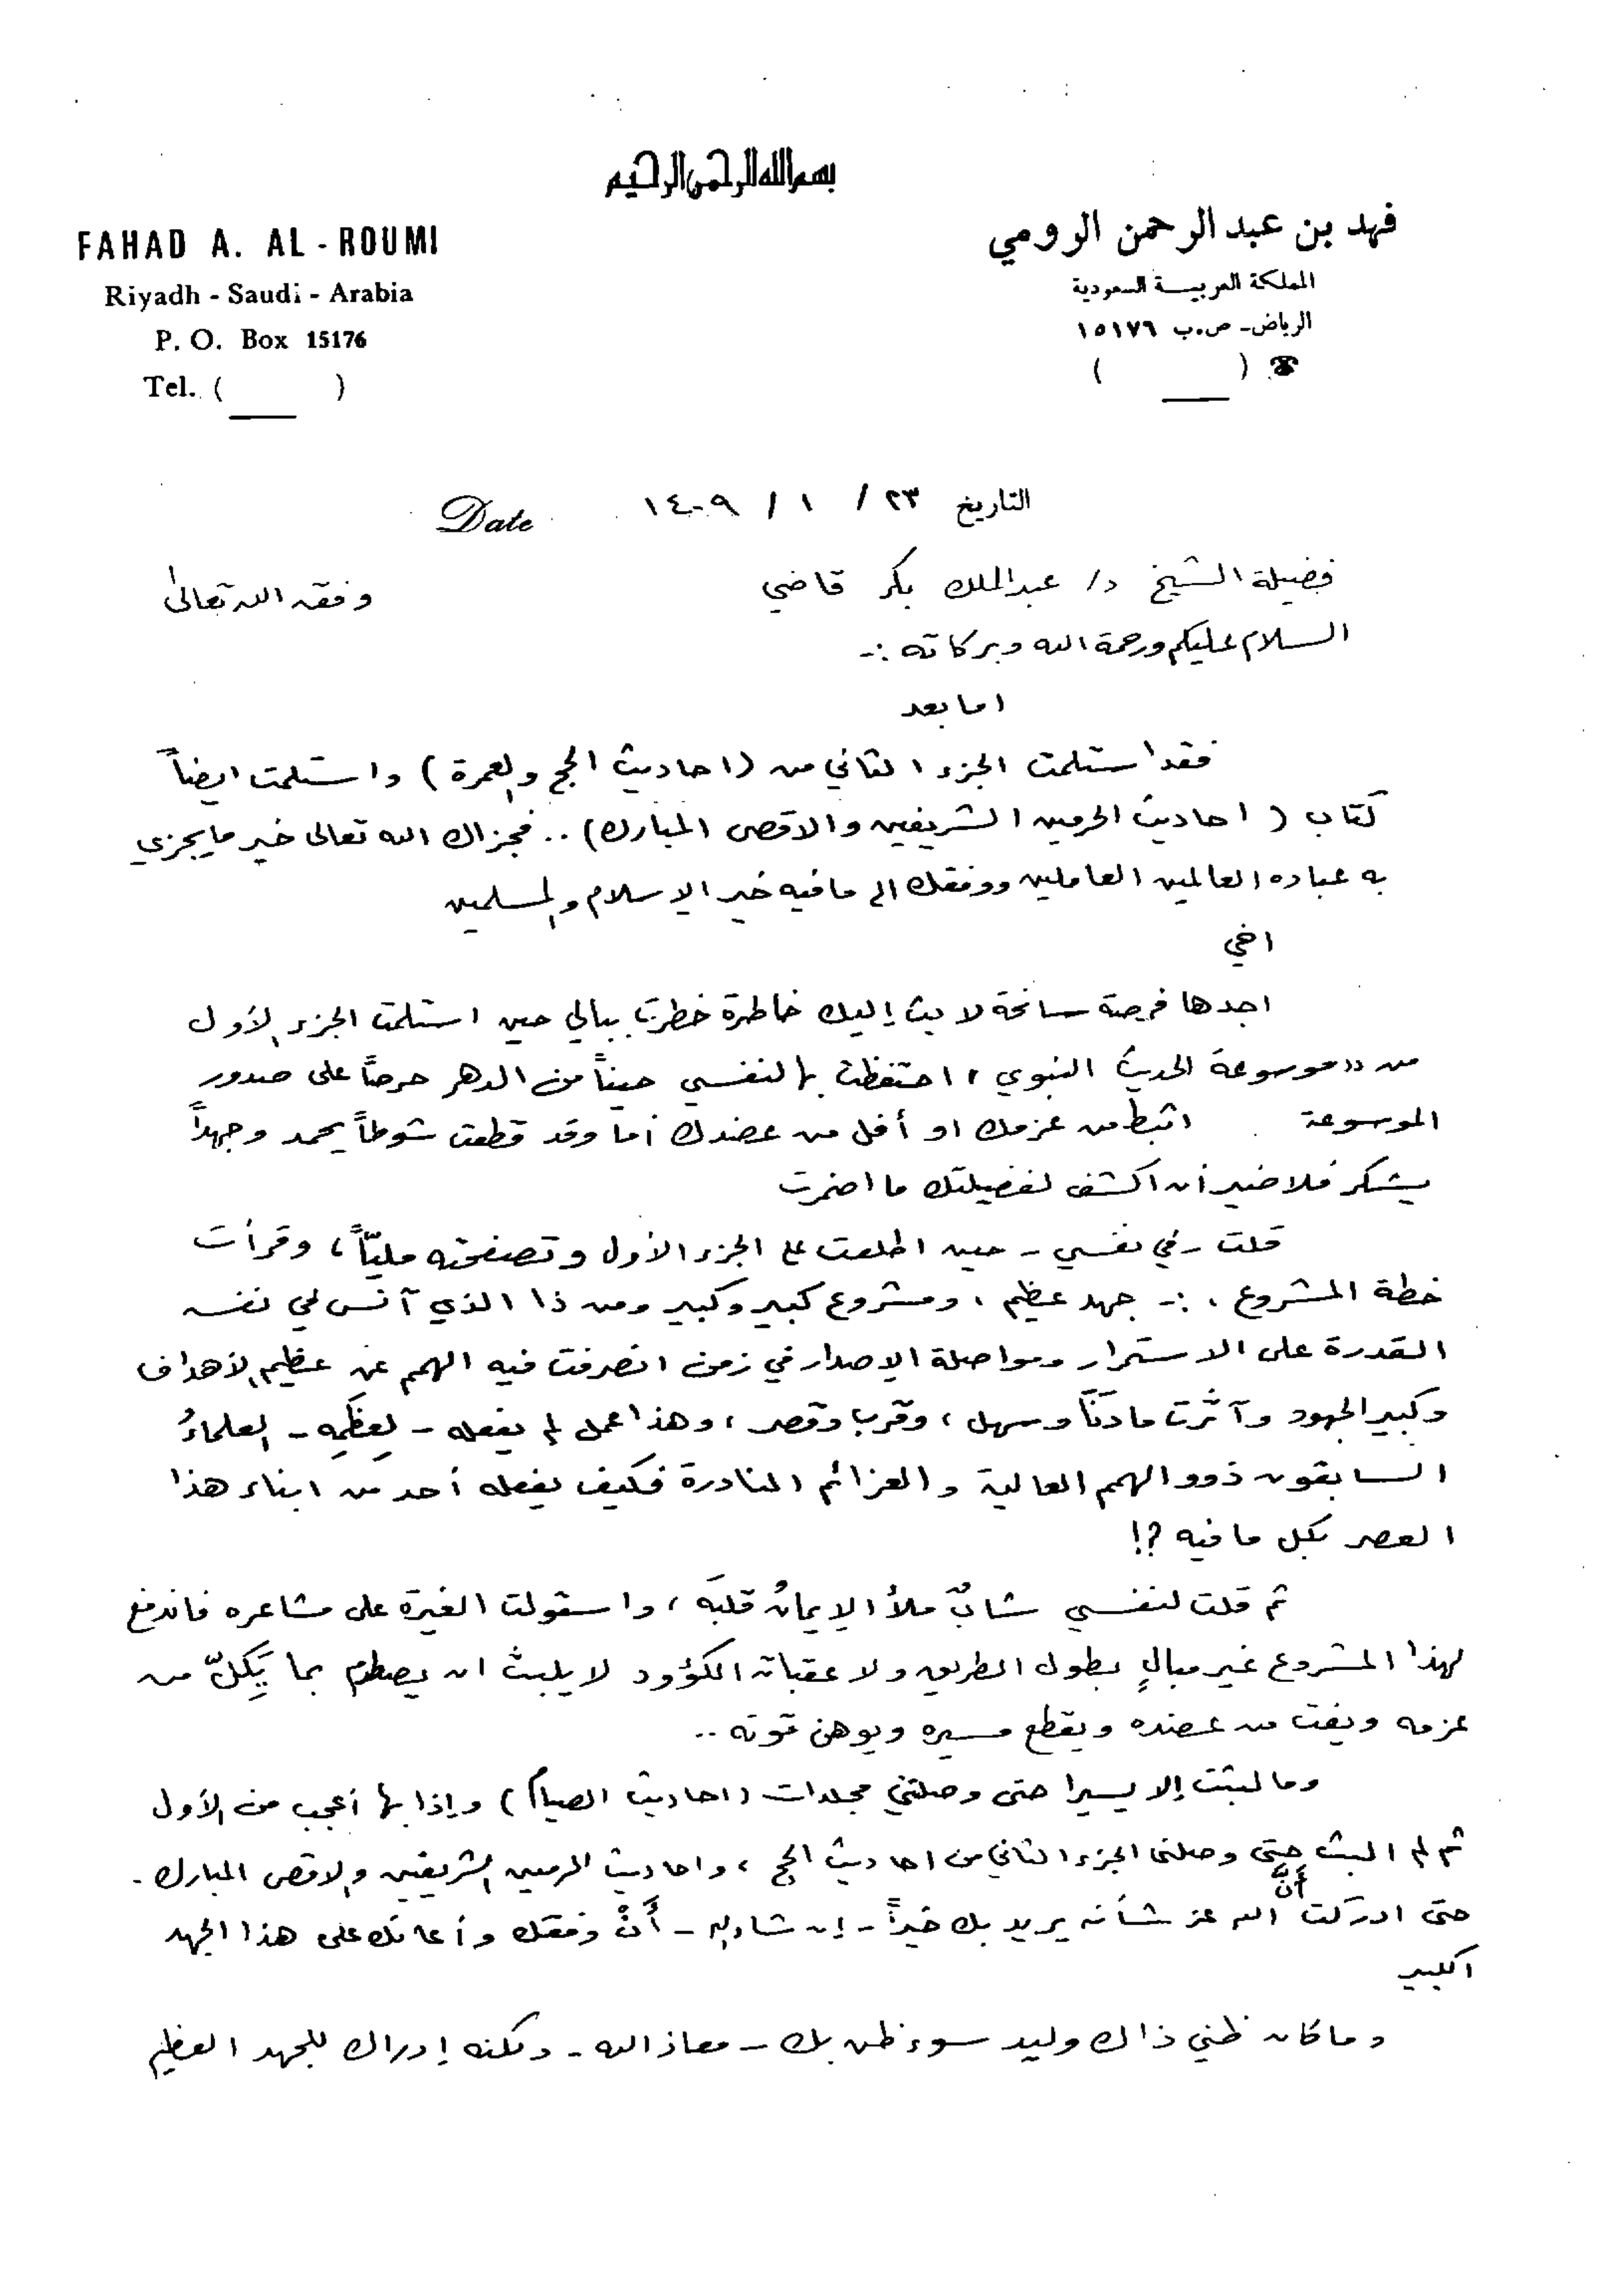 بسم الله الرحمن الرحيم
فهد بن عبد الرحمن الرومي
المملكة العربية السعودية
الرياض - ص.ب ١٥١٧٦
☎ ( )
FAHAD A. AL-ROUMI
Riyadh - Saudi - Arabia
P. O. Box 15176
Tel. ( )
التاريخ ٢٣ / ١ / ١٤٠٩ Date
فضيلة الشيخ د/ عبدالملك بكر قاضي وفقه الله تعالى
السلام عليكم ورحمة الله وبركاته :-
اما بعد
فقد استلمت الجزء الثاني من (احاديث الحج والعمرة) واستلمت ايضاً
كتاب (احاديث الحرمين الشريفين والاقصى المبارك) .. فجزاك الله تعالى خير مايجزي
به عباده العالمين العاملين ووفقك الى مافيه خير الاسلام والمسلمين
اخي
اجدها فرصة سانحة لابث إليك خاطرة خطرت ببالي حين استلمت الجزء الأول
من «موسوعة الحديث النبوي، احتفظت بها لنفسي حيناً من الدهر حرصاً على صدور
الموسوعة اثبط من عزمك او أفل من عضدك أما وقد قطعت شوطاً يحمد وجهداً
يشكر فلا ضير أن اكشف لفضيلتك ما اضمرت
قلت - في نفسي - حين اطلعت على الجزء الأول وتصفحته مليّاً، وقرأت
خطة المشروع، :- جهد عظيم، ومشروع كبير وكبير ومن ذا الذي آنس في نفسه
القدرة على الاستمرار ومواصلة الإصدار في زمن انصرفت فيه الهمم عن عظيم الأهداف
وكبير الجهود وآثرت مادَنَا وسهل، وقرب وقصر، وهذا عمل لم يفعله - لِعِظَمِه - العلماءُ
السابقون ذوو الهمم العالية والعزائم النادرة فكيف يفعله أحد من ابناء هذا
العصر بكل ما فيه ؟!
ثم قلت لنفسي شابٌ ملأ الإيمانُ قلبَه، واستولت الغيرة على مشاعره فاندفع
لهذا المشروع غير مبالٍ بطول الطريق ولا عقباته الكؤود لا يلبث ان يصطدم بما يَكِلّ من
عزمه ويفت من عضده ويقطع مسيره ويوهن قوته ..
وما لبثت إلا يسيرا حتى وصلتني مجلدات (احاديث الصيام) وإذا بها أعجب من الأول
ثم لم البث حتى وصلني الجزء الثاني من احاديث الحج، واحاديث الحرمين الشريفين والاقصى المبارك.
حتى ادركت أنَّ الله عز شأنه يريد بك خيراً - إن شاء الله - أَنْ وفقك وأعانك على هذا الجهد
الكبير
وما كان ظني ذاك وليد سوء ظن بك - معاذ الله - ولكنه إدراك للجهد العظيم